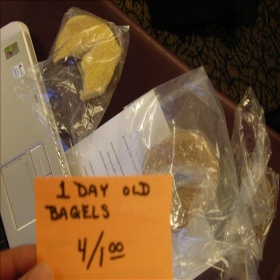 1 DAY OLD
BAGELS
4/1.00